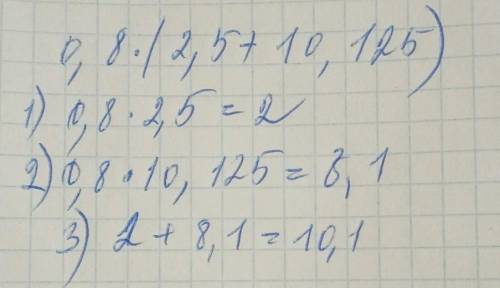 0,8·(2,5+10,125)
1) 0,8·2,5=2
2) 0,8·10,125=8,1
3) 2+8,1=10,1